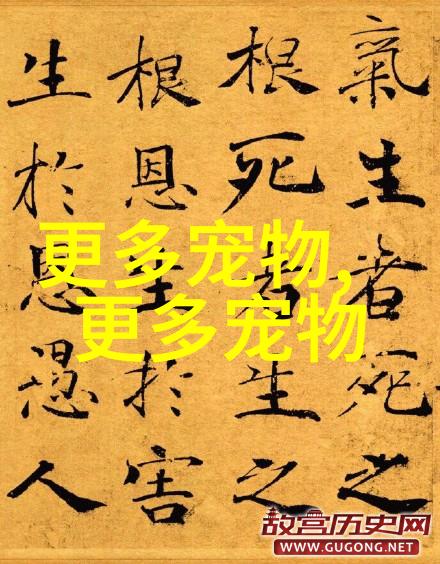 氣生者死之
根死者生之
根恩生於害
生於恩愚人
更多宠物,
更多宠物
故宫历史网
WWW.GUGONG.NET